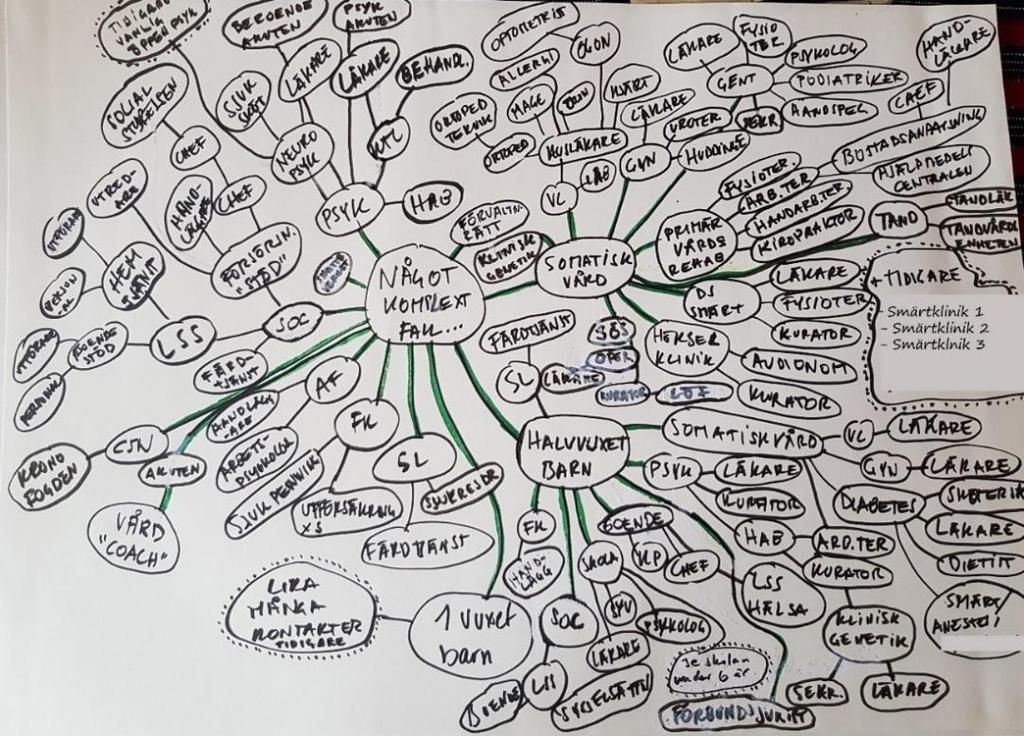 TIDIGARE
VANLIG
ÖPPEN PSYK
BEROENDE
AKUTEN
PSYK
AKUTEN
SOCIAL
STYRELSEN
SJUK
SKÖT
LÄKARE
LÄKARE
BEHANDL.
CHEF
NEURO
PSYK
KTC
UTRED-
ARE
HAND-
LÄGGARE
CHEF
PSYK
HAB
HEM
TJÄNST
FÖRSÖRJN.
"STÖD"
LSS
SOC
BOENDE
STÖD
FÄRD-
TJÄNST
NÅGOT
KOMPLEXT
FALL...
FÖRVALTN.
RÄTT
KLINISK
GENETIK
OPTOMETRIST
ÖGON
ALLERGI
MAGE
ÖRON
HJÄRT
ORTOPED
TEKNIK
ORTOPED
HUSLÄKARE
LÄKARE
VC
LAB
GYN
UROTER
HUDDINGE
LÄKARE
FYSIO
TER.
GENT
SEKR
PSYKOLOG
PODIATRIKER
HAND-
LÄGGARE
CHEF
BOSTADSANPASSNING
HJÄLPMEDELS
CENTRALEN
SOMATISK
VÅRD
PRIMÄR
VÅRDS
REHAB
FYSIOTER.
ARB.TER
HANDARB.TER
KIROPRAKTOR
TAND
TANDLÄK
TANDVÅRDS
ENHETEN
DS
SMÄRT
LÄKARE
FYSIOTER
KURATOR
+ TIDIGARE
- Smärtklinik 1
- Smärtklinik 2
- Smärtklnik 3
SÖS
OPER
LÄKARE
KURATOR
KLINIK
AUDIONOM
KURATOR
FÄRDTJÄNST
SL
KRONO
FOGDEN
CSN
AKUTEN
VÅRD
"COACH"
AF
HANDLÄGG
-ARE
ARBETS
PSYKOLOG
FK
SJUKPENNING
UTFÖRSÄKRING
X5
SL
SJUKRESOR
FÄRDTJÄNST
LIKA
MÅNGA
KONTAKTER
TIDIGARE
1 vuxet
barn
HALVVUXET
BARN
SOMATISKVÅRD
VC
LÄKARE
GYN
LÄKARE
DIABETES
LÄKARE
DIETIT
SMÄRT/
PSYK
LÄKARE
KURATOR
HAB
ARB.TER
KURATOR
KLINISK
GENETIK
SEKR.
LÄKARE
FK
HAND
LÄGG
SOC
LSS
BOENDE
SKOLA
SYV
PSYKOLOG
LÄKARE
SYSSELSÄTTN
BOENDE
KP
CHEF
LSS
HÄLSA
Se skolan
under 6 år
FÖRBUNDSJURIST